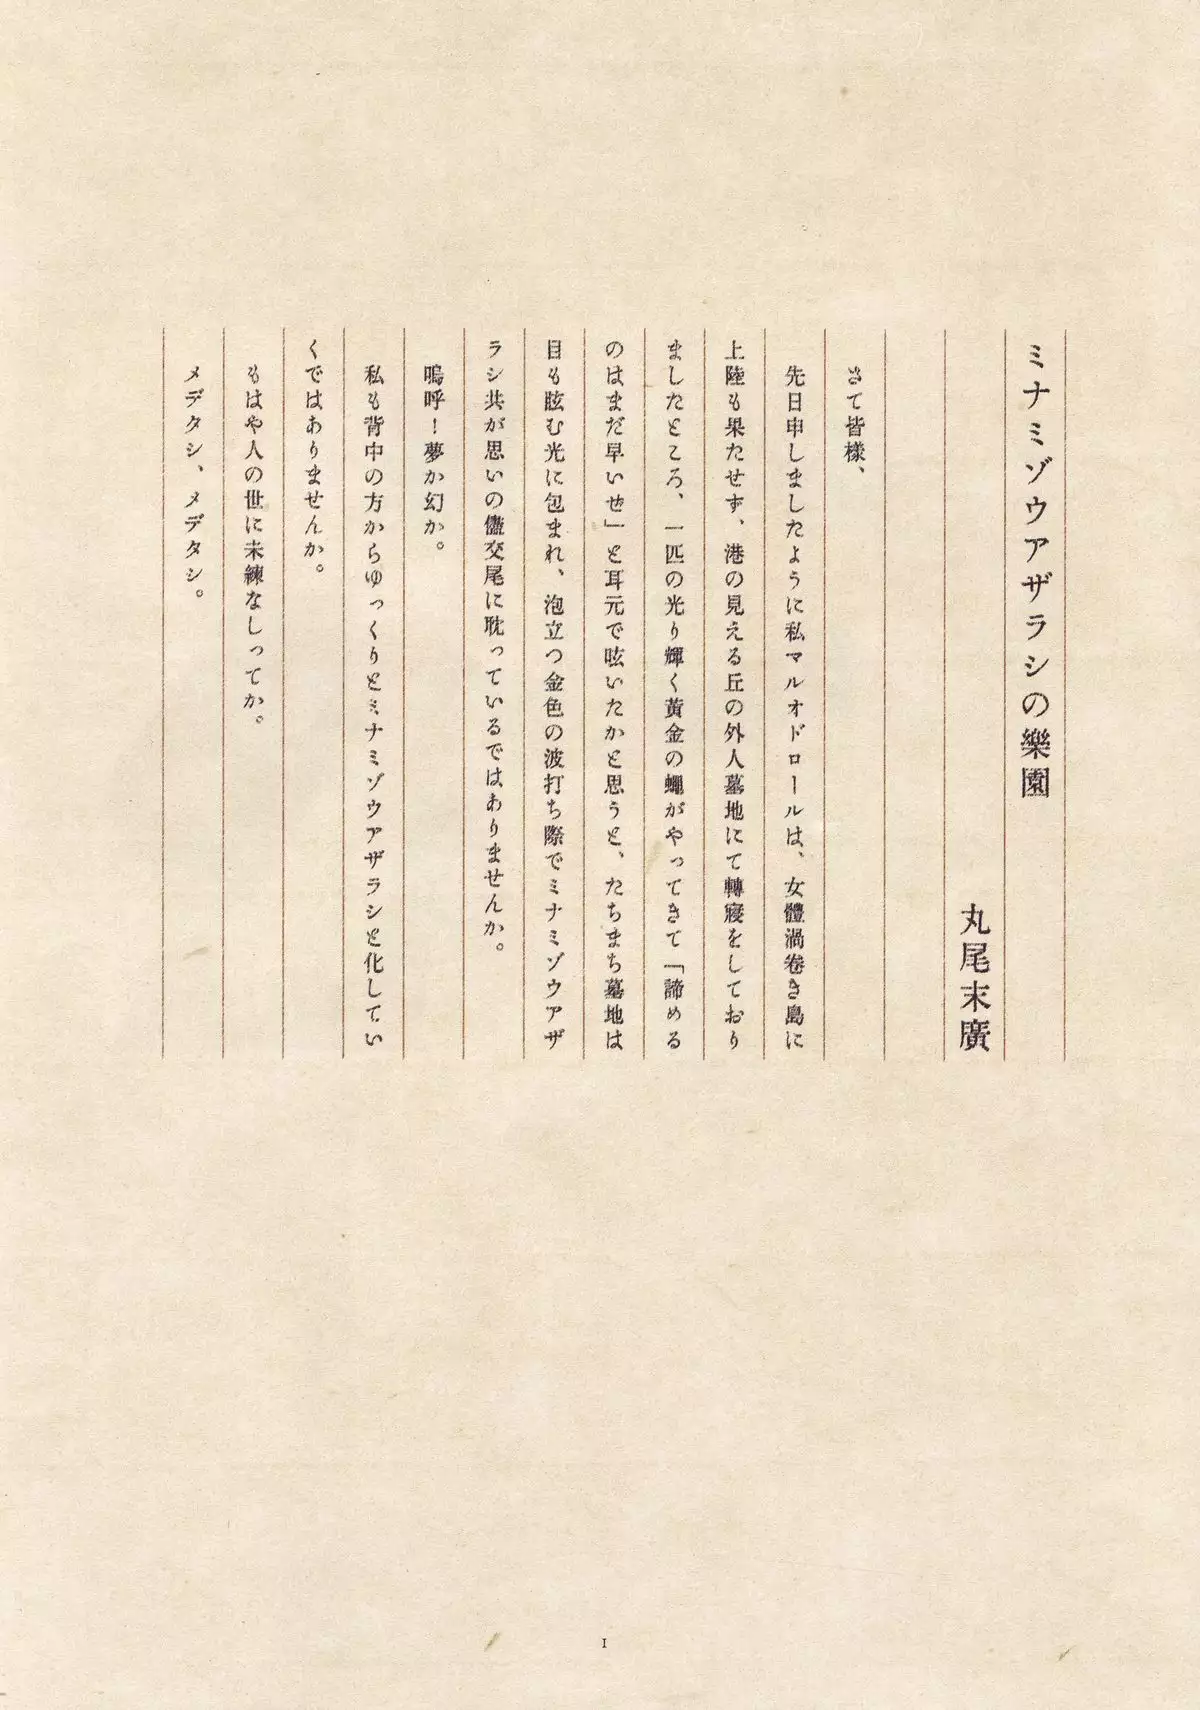 ミナミゾウアザラシの樂園
丸尾末廣
さて皆樣、
先日申しましたように私マルオドロールは、女體渦卷き島に
上陸も果たせず、港の見える丘の外人墓地にて轉寢をしており
ましたところ、一匹の光り輝く黃金の蠅がやってきて「諦める
のはまだ早いぜ」と耳元で呟いたかと思うと、たちまち墓地は
目も眩む光に包まれ、泡立つ金色の波打ち際でミナミゾウアザ
ラシ共が思いの儘交尾に耽っているではありませんか。
嗚呼！夢か幻か。
私も背中の方からゆっくりとミナミゾウアザラシと化してい
くではありませんか。
もはや人の世に未練なしってか。
メデタシ、メデタシ。
1